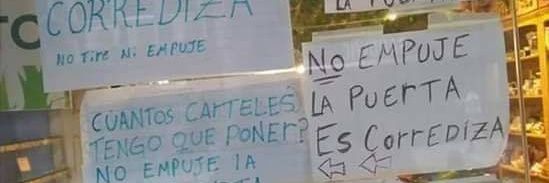 CORREDIZA
NO TirE Ni EMPUJE
LA PUERTA
NO EMPUJE
LA PUErTA
Es CorrEDIZA
CUANTOS CArTELES
TENGO QUE PONEr?
NO EMPUJE lA